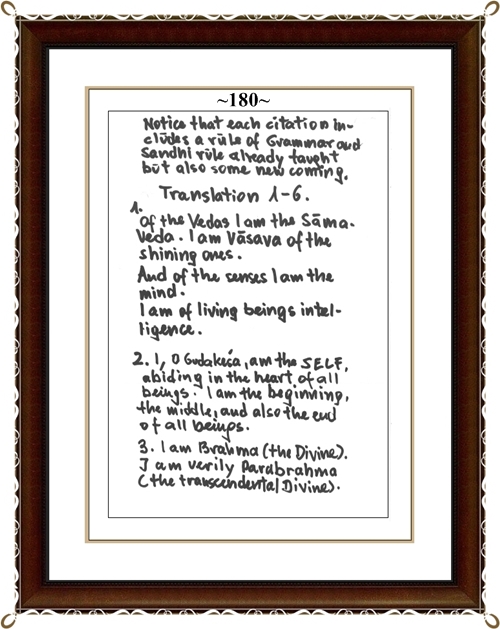 ~180~
Notice that each citation in-
clūdes a rūle of Grammar and
Sandhi rūle already taught
būt also some new coming.
Translation 1-6.
1.
Of the Vedas I am the Sāma-
Veda. I am Vāsava of the
shining ones.
And of the senses I am the
mind.
I am of living beings intel-
ligence.
2. I, O Gudakeśa, am the SELF,
abiding in the heart of all
beings. I am the beginning,
the middle, and also the end
of all beings.
3. I am Brahma (the Divine).
I am verily Parabrahma
(the transcendental Divine).